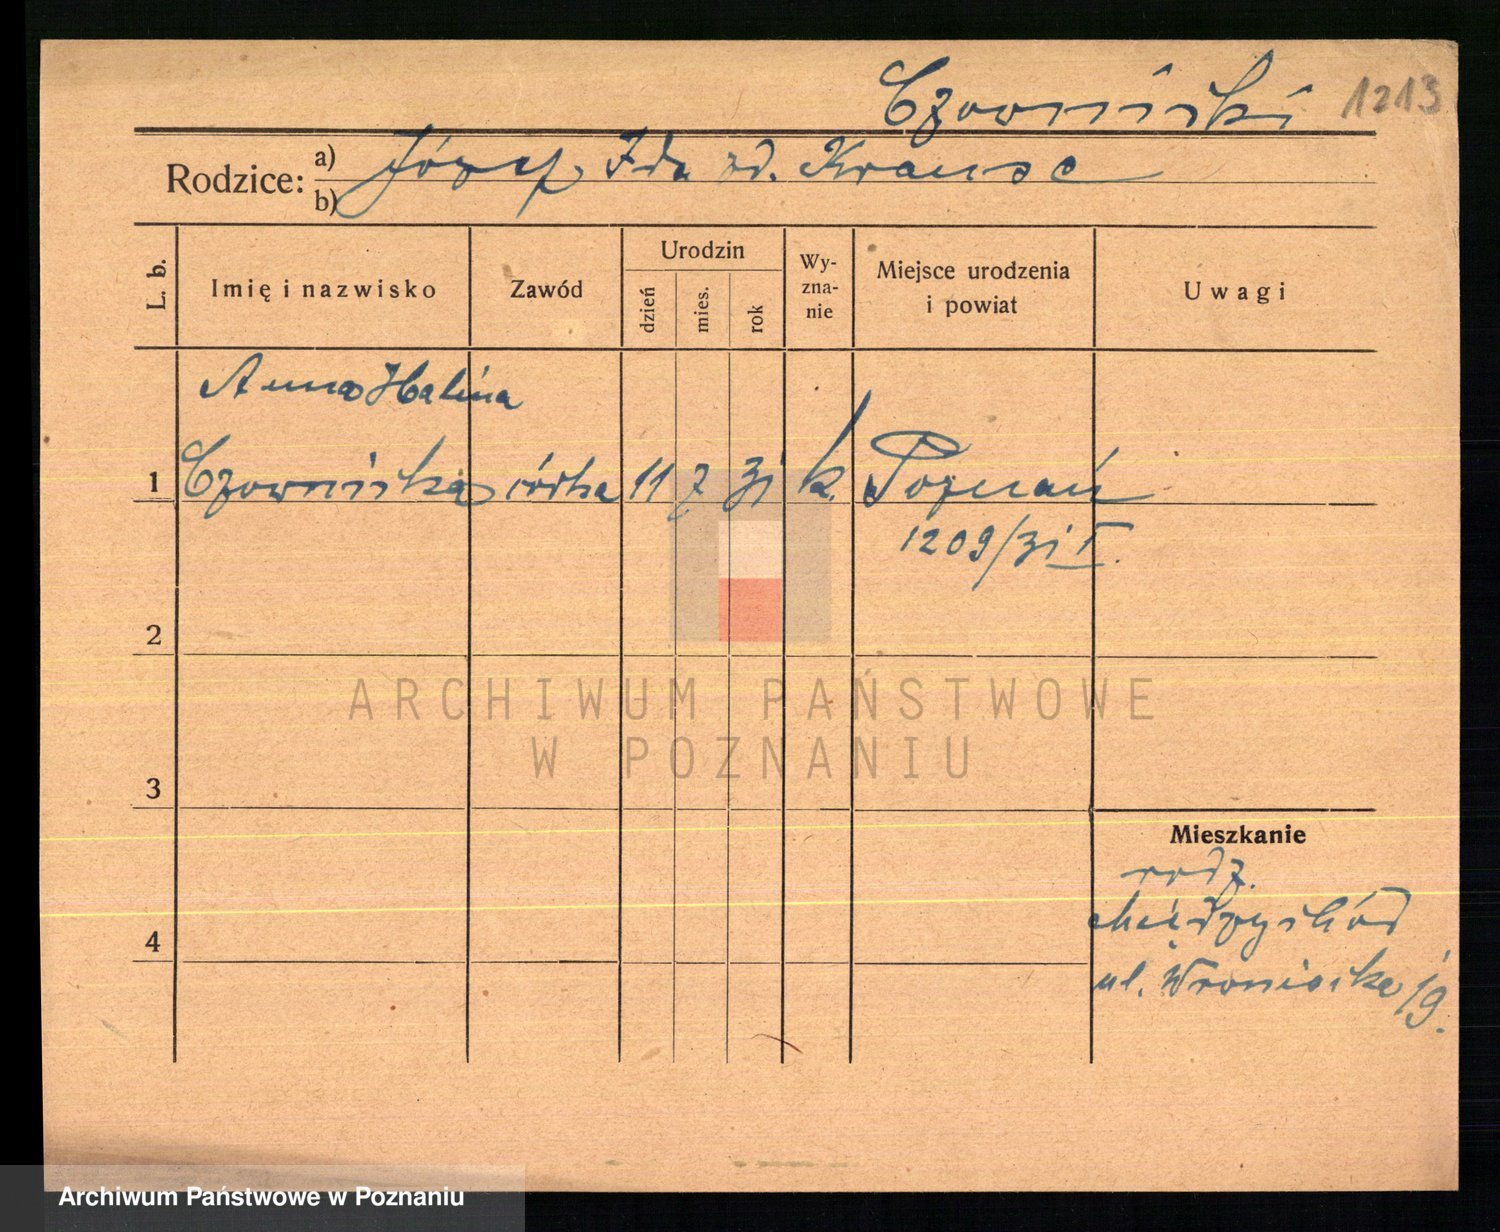 1213
Rodzice: a) Józef Ida zd. Krause
b)
L. b.
Imię i nazwisko
Zawód
Urodzin
dzień
mies.
rok
Wy-
zna-
nie
Miejsce urodzenia
i powiat
Uwagi
Anna Halina
1 córka 11 7 31 k. Poznań
1209/31 I.
2
3
4
Mieszkanie
rodz.
Międzychód
ul. Wroniecka 19.
ARCHIWUM PAŃSTWOWE
W POZNANIU
Archiwum Państwowe w Poznaniu